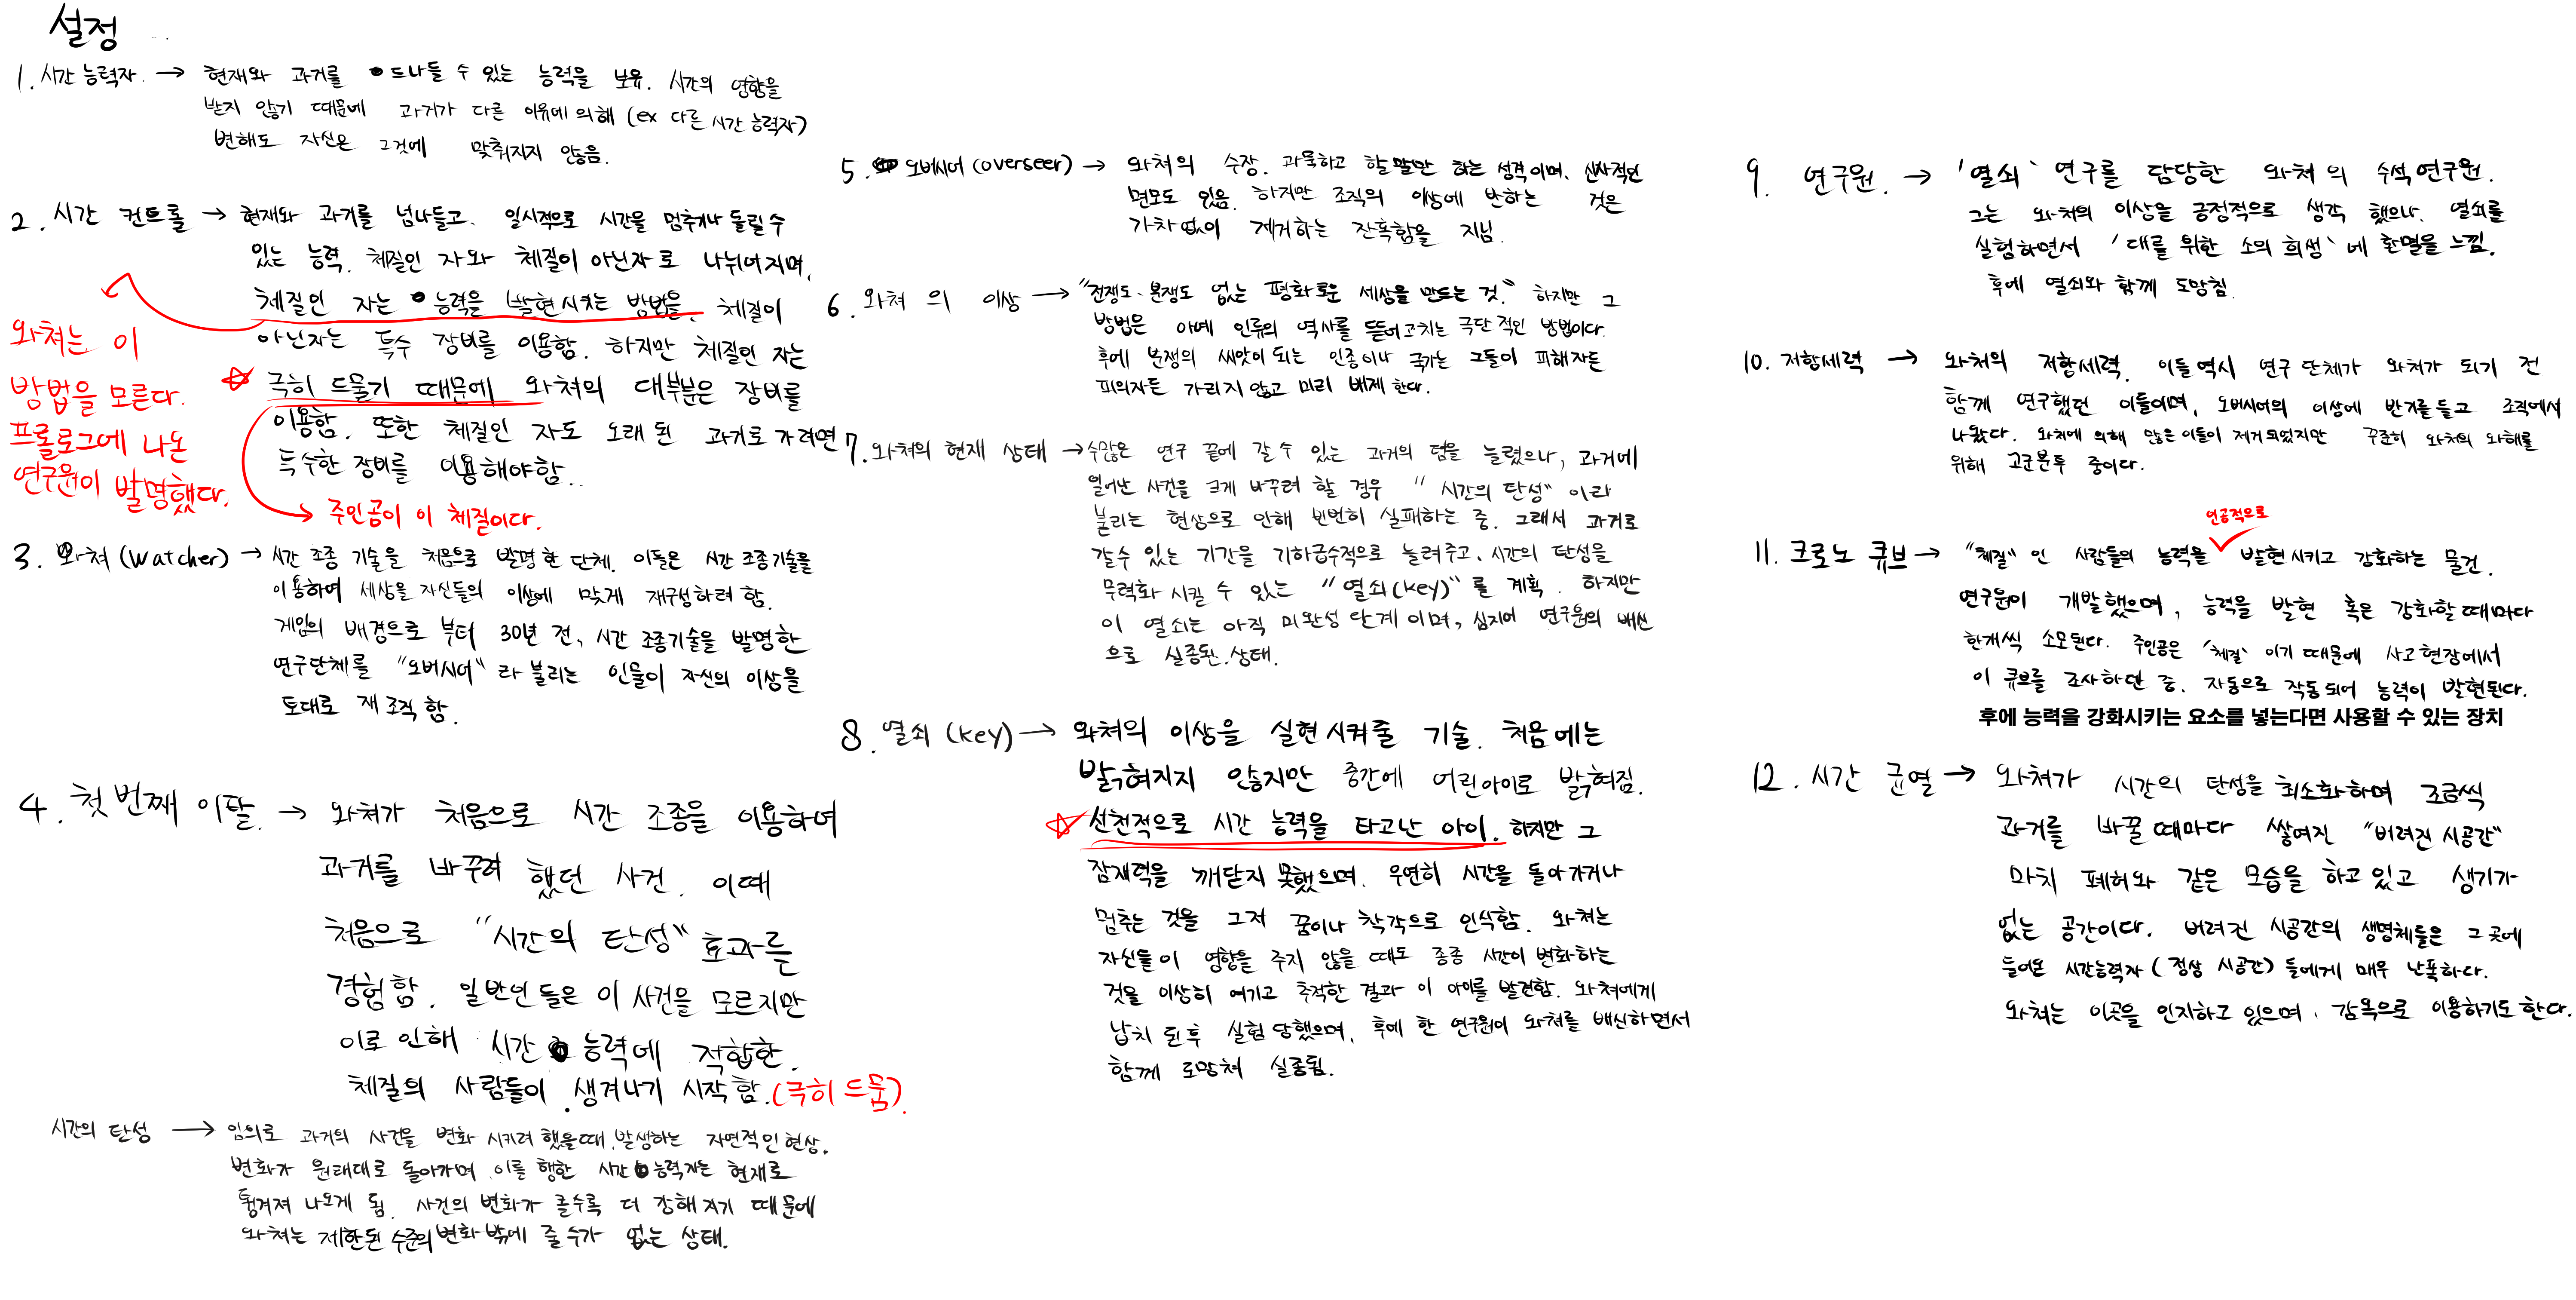 설정
1. 시간 능력자. → 현재와 과거를 드나들 수 있는 능력을 보유. 시간의 영향을
받지 않기 때문에 과거가 다른 이유에 의해 (ex 다른 시간 능력자)
변해도 자신은 그것에 맞춰지지 않음.
2. 시간 컨트롤 → 현재와 과거를 넘나들고, 일시적으로 시간을 멈추거나 돌릴 수
있는 능력. 체질인 자와 체질이 아닌자로 나뉘어지며,
체질인 자는 능력을 발현시키는 방법을, 체질이
아닌자는 특수 장비를 이용함. 하지만 체질인 자는
극히 드물기 때문에 와쳐의 대부분은 장비를
이용함. 또한 체질인 자도 오래 된 과거로 가려면
특수한 장비를 이용해야함.
와쳐는 이
방법을 모른다.
프롤로그에 나온
연구원이 발명했다.
주인공이 이 체질이다.
3. 와쳐 (Watcher) → 시간 조종 기술을 처음으로 발명한 단체. 이들은 시간 조종기술을
이용하여 세상을 자신들의 이상에 맞게 재구성하려 함.
게임의 배경으로 부터 30년 전, 시간 조종기술을 발명한
연구단체를 "오버시어"라 불리는 인물이 자신의 이상을
토대로 재조직함.
4. 첫번째 이탈. → 와쳐가 처음으로 시간 조종을 이용하여
과거를 바꾸려 했던 사건. 이때
처음으로 "시간의 탄성" 효과를
경험함. 일반인들은 이 사건을 모르지만
이로 인해 시간 능력에 적합한.
체질의 사람들이 생겨나기 시작함. (극히 드뭄).
시간의 탄성 → 임의로 과거의 사건을 변화 시키려 했을때, 발생하는 자연적인 현상.
변화가 원래대로 돌아가며, 이를 행한 시간 능력자는 현재로
튕겨져 나오게 됨. 사건의 변화가 클수록 더 강해지기 때문에
와쳐는 제한된 수준의 변화 밖에 줄 수가 없는 상태.
5. 오버시어 (overseer) → 와쳐의 수장. 과묵하고 할말만 하는 성격이며, 신사적인
면모도 있음. 하지만 조직의 이상에 반하는 것은
가차없이 제거하는 잔혹함을 지님.
6. 와쳐 의 이상 → "전쟁도, 분쟁도 없는 평화로운 세상을 만드는 것." 하지만 그
방법은 아예 인류의 역사를 뜯어고치는 극단적인 방법이다.
후에 분쟁의 씨앗이 되는 인종이나 국가는 그들이 피해자든
피의자든 가리지 않고 미리 배제 한다.
7. 와쳐의 현재 상태 → 수많은 연구 끝에 갈 수 있는 과거의 텀을 늘렸으나, 과거에
일어난 사건을 크게 바꾸려 할 경우 "시간의 탄성" 이라
불리는 현상으로 인해 번번히 실패하는 중. 그래서 과거로
갈수 있는 기간을 기하급수적으로 늘려주고, 시간의 탄성을
무력화 시킬 수 있는 "열쇠(key)"를 계획. 하지만
이 열쇠는 아직 미완성 단계 이며, 심지어 연구원의 배신
으로 실종된 상태.
8. 열쇠 (key) → 와쳐의 이상을 실현시켜줄 기술. 처음에는
밝혀지지 않지만 중간에 어린아이로 밝혀짐.
선천적으로 시간 능력을 타고난 아이. 하지만 그
잠재력을 깨닫지 못했으며. 우연히 시간을 돌아가거나
멈추는 것을 그저 꿈이나 착각으로 인식함. 와쳐는
자신들이 영향을 주지 않을 때도 종종 시간이 변화하는
것을 이상히 여기고 추적한 결과 이 아이를 발견함. 와쳐에게
납치 된후 실험 당했으며, 후에 한 연구원이 와쳐를 배신하면서
함께 도망쳐 실종됨.
9. 연구원. → '열쇠' 연구를 담당한 와쳐의 수석연구원.
그는 와쳐의 이상을 긍정적으로 생각 했으나, 열쇠를
실험하면서 '대를 위한 소의 희생'에 환멸을 느낌.
후에 열쇠와 함께 도망침.
10. 저항세력 → 와쳐의 저항세력. 이들 역시 연구 단체가 와쳐가 되기 전
함께 연구했던 이들이며, 오버시어의 이상에 반기를 들고 조직에서
나왔다. 와쳐에 의해 많은 이들이 제거되었지만 꾸준히 와쳐의 와해를
위해 고군분투 중이다.
11. 크로노 큐브 → "체질"인 사람들의 능력을 인공적으로 발현시키고 강화하는 물건.
연구원이 개발했으며, 능력을 발현 혹은 강화할때마다
한개씩 소모된다. 주인공은 '체질' 이기 때문에 사고현장에서
이 큐브를 조사하던 중. 자동으로 작동되어 능력이 발현된다.
후에 능력을 강화시키는 요소를 넣는다면 사용할 수 있는 장치
12. 시간 균열 → 와쳐가 시간의 탄성을 최소화하며 조금씩
과거를 바꿀때마다 쌓여진 "버려진 시공간"
마치 폐허와 같은 모습을 하고 있고 생기가
없는 공간이다. 버려진 시공간의 생명체들은 그 곳에
들어온 시간능력자 (정상 시공간) 들에게 매우 난폭하다.
와쳐는 이곳을 인지하고 있으며, 감옥으로 이용하기도 한다.